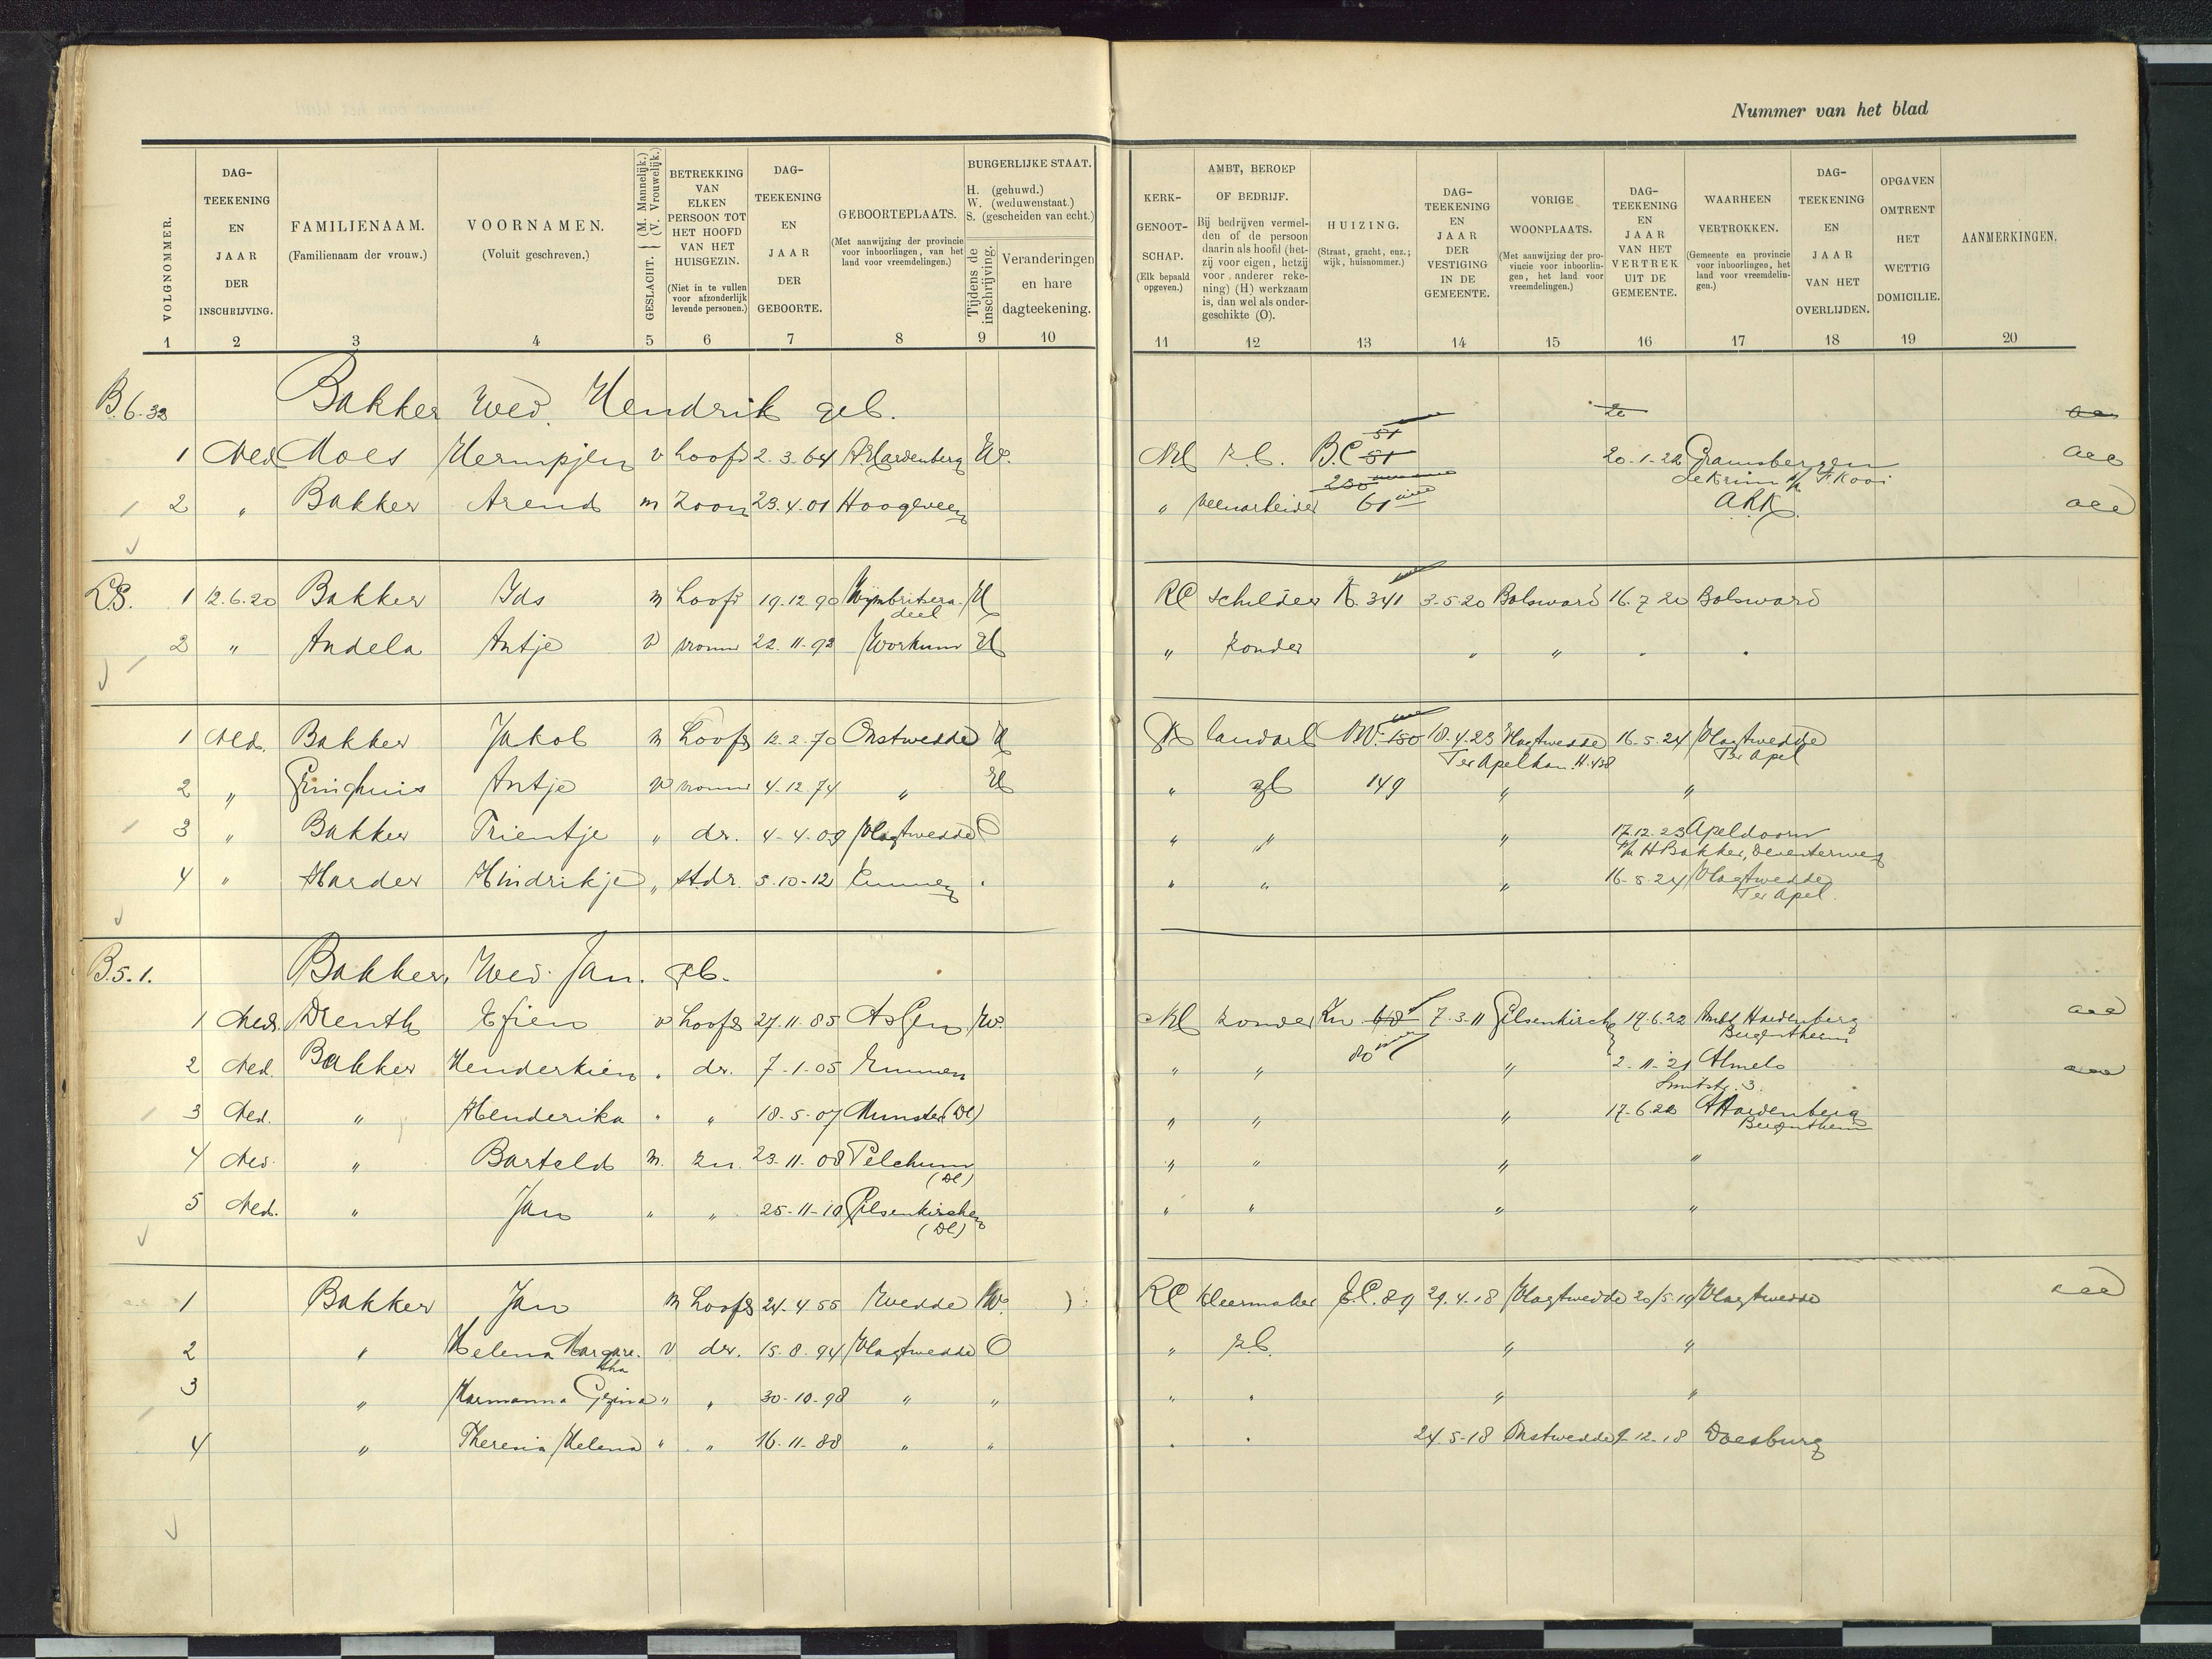 Nummer van het blad
VOLGNOMMER. 1
DAG-TEEKENING EN JAAR DER INSCHRIJVING. 2
FAMILIENAAM. (Familienaam der vrouw.) 3
VOORNAMEN. (Voluit geschreven.) 4
GESLACHT. (M. Mannelijk.) (V. Vrouwelijk.) 5
BETREKKING VAN ELKEN PERSOON TOT HET HOOFD VAN HET HUISGEZIN. (Niet in te vullen voor afzonderlijk levende personen.) 6
DAG-TEEKENING EN JAAR DER GEBOORTE. 7
GEBOORTEPLAATS. (Met aanwijzing der provincie voor inboorlingen, van het land voor vreemdelingen.) 8
BURGERLIJKE STAAT. H. (gehuwd.) W. (weduwenstaat.) S. (gescheiden van echt.)
Tijdens de inschrijving. 9
Veranderingen en hare dagteekening. 10
KERK-GENOOT-SCHAP. (Elk bepaald opgeven.) 11
AMBT, BEROEP OF BEDRIJF. Bij bedrijven vermelden of de persoon daarin als hoofd (hetzij voor eigen, hetzij voor anderer rekening) (H) werkzaam is, dan wel als ondergeschikte (O). 12
HUIZING. (Straat, gracht, enz.; wijk, huisnommer.) 13
DAG-TEEKENING EN JAAR DER VESTIGING IN DE GEMEENTE. 14
VORIGE WOONPLAATS. (Met aanwijzing der provincie voor inboorlingen, het land voor vreemdelingen.) 15
DAG-TEEKENING EN JAAR VAN HET VERTREK UIT DE GEMEENTE. 16
WAARHEEN VERTROKKEN. (Gemeente en provincie voor inboorlingen, het land voor vreemdelingen.) 17
DAG-TEEKENING EN JAAR VAN HET OVERLIJDEN. 18
OPGAVEN OMTRENT HET WETTIG DOMICILIE. 19
AANMERKINGEN. 20
B.6.33 Bakker Wed. Hendrik geb.
1 Ned Moes Hermpjen v hoofd 2.3.64 A.Hardenberg W. NH z.b. B.C 51 51 20-1-22 Gramsbergen
230 de Krim F. Kooi
2 " Bakker Arend m Zoon 23.4.01 Hoogeveen " veenarbeider 61
1 12.6.20 Bakker Ids m hoofd 19.12.90 Wymbritsera- H RC Schilder K. 341 3-5-20 Bolsward 16.7.20 Bolsward
deel
2 " Andela Antje v vrouw 22.11.92 Workum H " zonder " " " "
1 Ned. Bakker Jakob m hoofd 12.2.70 Onstwedde H landarb NW. 150 18.4.23 Vlagtwedde 16-5-24 Vlagtwedde
Ter Apelkan. H.438 Ter Apel
2 " Gringhuis Antje v vrouw 4.12.74 " H " zb 149 " "
3 " Bakker Trientje " dr. 4-4-09 Vlagtwedde O " " " 17.12.23 Apeldoorn
H Bakker, Deventerweg
4 " Harder Hindrikje " st.dr. 5-10-12 Emmen " " " " 16-5-24 Vlagtwedde
Ter Apel.
B.5.1. Bakker, Wed. Jan. gb.
1 Ned. Drenth Efien v hoofd 27.11.85 Assen W. NH zonder 7.3.11 Gelsenkirch 17.6.22 Ambt Hardenberg
Bergentheim
2 Ned. Bakker Henderkien " dr. 7-1-05 Emmen " " 80 " 2-11-21 Almelo
3 Ned. " Henderika " " 18-5-07 Munster (Dl) " " " 17-6-22 A Hardenberg
Bergentheim
4 Ned. " Barteld m. zn. 23-11-08 Pelchum " " " "
(Dl)
5 Ned. " Jan " " 25-11-10 Gelsenkirchen " " " "
(Dl)
1 Bakker Jan m hoofd 24.4.55 Wedde W. RC kleermaker E.C. 89 29.4.18 Vlagtwedde 20/5.19 Vlagtwedde
2 " Helena Margare- v dr. 15.8.94 Vlagtwedde O " z.b. " "
tha
3 " Harmanna Gezina " " 30-10-98 " " " " " "
4 " Theresia Helena " " 16-11-88 " " " " 24-5-18 Onstwedde 9-12-18 Doesburg